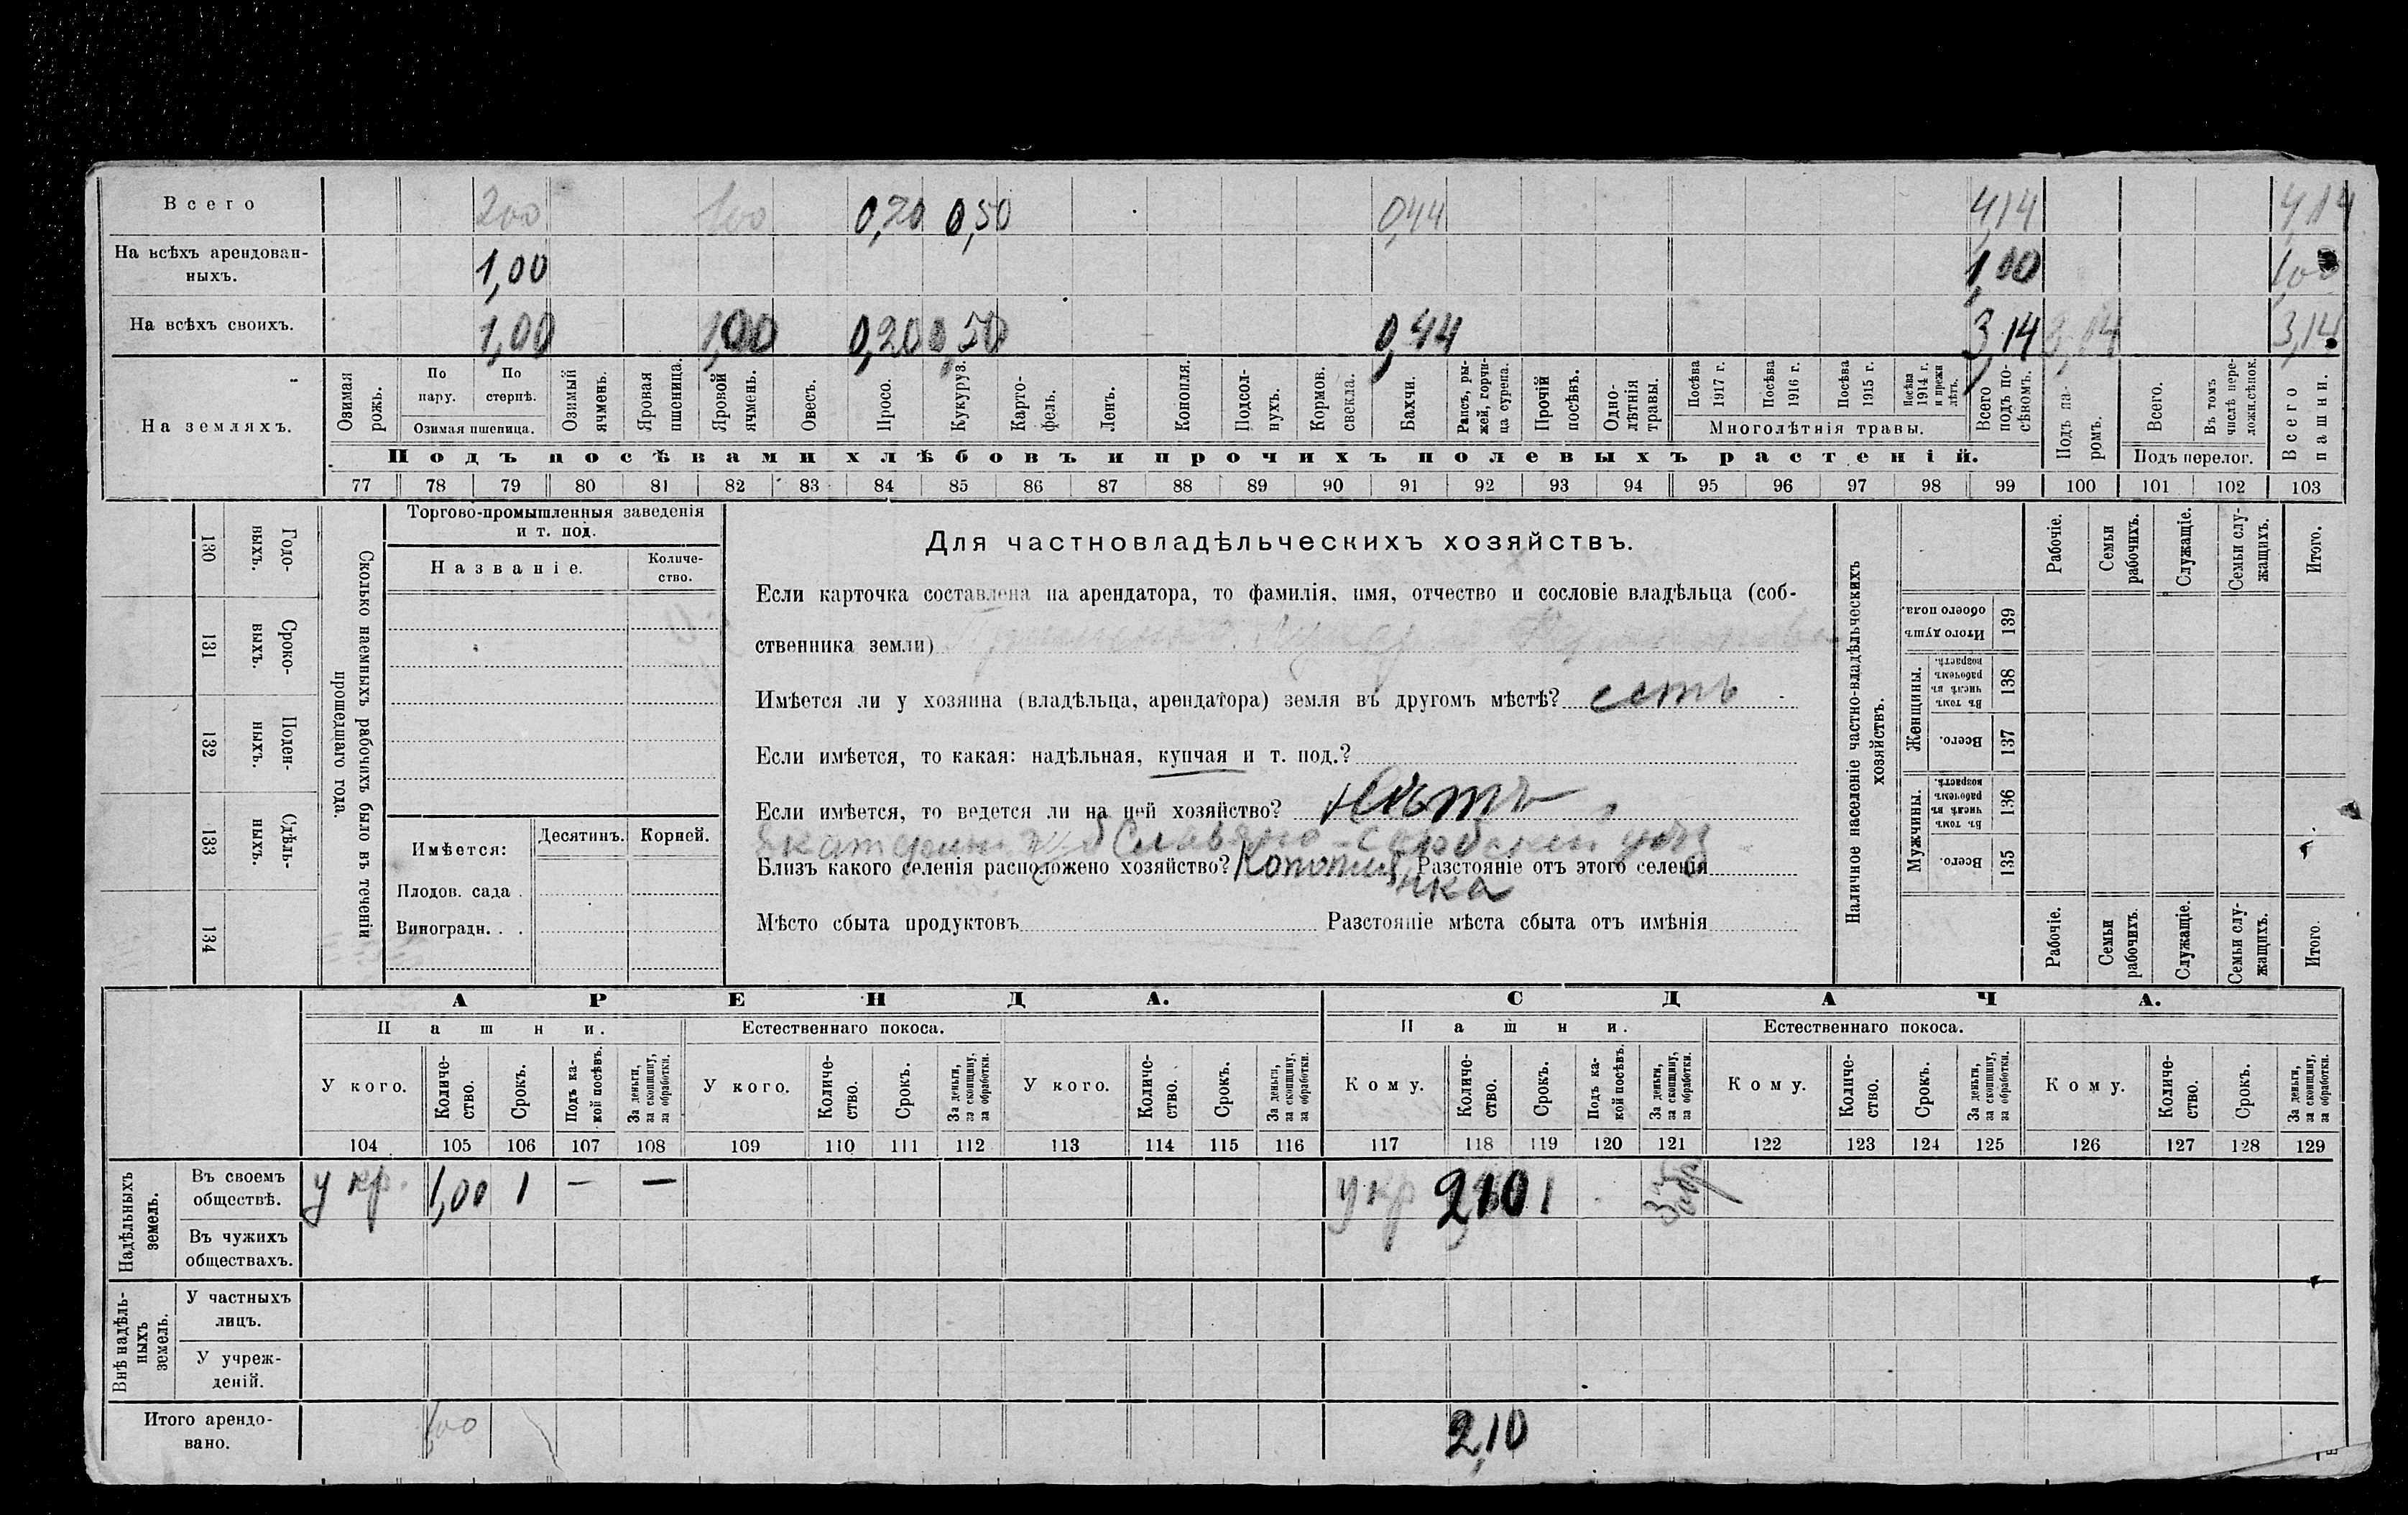 Всего 200 100 0,20 0,50 0,44 4,14 4,14
На всѣхъ арендован-
ныхъ. 1,00 1,00 1,00
На всѣхъ своихъ. 1,00 1,00 0,20 0,50 0,44 3,14 3,14
На земляхъ.
Озимая рожь.
По пару.
По стернѣ.
Озимая пшеница.
Озимый ячмень.
Яровая пшеница.
Яровой ячмень.
Овесъ.
Просо.
Кукуруз.
Карто-
фель.
Ленъ.
Конопля.
Подсол-
нухъ.
Кормов.
свекла.
Бахчи.
Рапсъ, ры-
жей, горчи-
ца сурепа.
Прочій
посѣвъ.
Одно-
лѣтнія
травы.
Посѣва
1917 г.
Посѣва
1916 г.
Посѣва
1915 г.
Посѣва
1914 г.
и прежн
лѣтъ.
Многолѣтнія травы.
Всего
подъ по-
сѣвомъ.
Подъ па-
ромъ.
Всего.
Въ томъ
числѣ пере-
ложн.сѣнок.
Подъ перелог.
Всего
пашни.
Подъ посѣвами хлѣбовъ и прочихъ полевыхъ растеній.
77 78 79 80 81 82 83 84 85 86 87 88 89 90 91 92 93 94 95 96 97 98 99 100 101 102 103
Годо-
выхъ.
130
Сроко-
выхъ.
131
Поден-
ныхъ.
132
Сдѣль-
ныхъ.
133
134
Сколько наемныхъ рабочихъ было въ теченіи
прошедшаго года.
Торгово-промышленныя заведенія
и т. под.
Названіе.
Количе-
ство.
Имѣется:
Десятинъ. Корней.
Плодов. сада .
Виноградн. . .
Для частновладѣльческихъ хозяйствъ.
Если карточка составлена на арендатора, то фамилія, имя, отчество и сословіе владѣльца (соб-
ственника земли)
Имѣется ли у хозяина (владѣльца, арендатора) земля въ другомъ мѣстѣ? есть
Если имѣется, то какая: надѣльная, купчая и т. под.?
Если имѣется, то ведется ли на ней хозяйство?
Славяно-сербскій уѣз
Близъ какого селенія расположено хозяйство? Разстояніе отъ этого селенія
Мѣсто сбыта продуктовъ Разстояніе мѣста сбыта отъ имѣнія
Наличное населеніе частно-владѣльческихъ
хозяйствъ.
Рабочіе.
Семьи
рабочихъ.
Служащіе.
Семьи слу-
жащихъ.
Итого.
Итого душъ
обоего пола.
139
Женщины.
Въ томъ
числѣ въ
рабочемъ
возрастѣ.
138
Всего.
137
Мужчины.
Въ томъ
числѣ въ
рабочемъ
возрастѣ.
136
Всего.
135
Рабочіе.
Семьи
рабочихъ.
Служащіе.
Семьи слу-
жащихъ.
Итого.
АРЕНДА. СДАЧА.
Пашни. Естественнаго покоса. Пашни. Естественнаго покоса.
У кого.
Количе-
ство.
Срокъ.
Подъ ка-
кой посѣвъ.
За деньги,
за скопщину,
за обработки.
У кого.
Количе-
ство.
Срокъ.
За деньги,
за скопщину,
за обработки.
У кого.
Количе-
ство.
Срокъ.
За деньги,
за скопщину,
за обработки.
Кому.
Количе-
ство.
Срокъ.
Подъ ка-
кой посѣвъ.
За деньги,
за скопщину,
за обработки.
Кому.
Количе-
ство.
Срокъ.
За деньги,
за скопщину,
за обработки.
Кому.
Количе-
ство.
Срокъ.
За деньги,
за скопщину,
за обработки.
104 105 106 107 108 109 110 111 112 113 114 115 116 117 118 119 120 121 122 123 124 125 126 127 128 129
Надѣльныхъ
земель.
Въ своемъ
обществѣ. у кр. 1,00 1 — — у кр 2,10 1
Въ чужихъ
обществахъ.
Внѣ надѣль-
ныхъ
земель.
У частныхъ
лицъ.
У учреж-
деній.
Итого арендо-
вано. 1,00 2,10